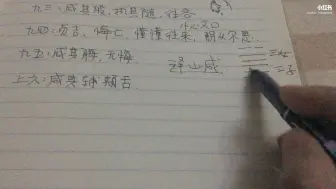 小红书
九三:咸其股,执其随,往吝
九四:贞吉,悔亡,憧憧往来,朋从尔思
九五:咸其脢,无悔
泽山咸
上六:咸其辅颊舌